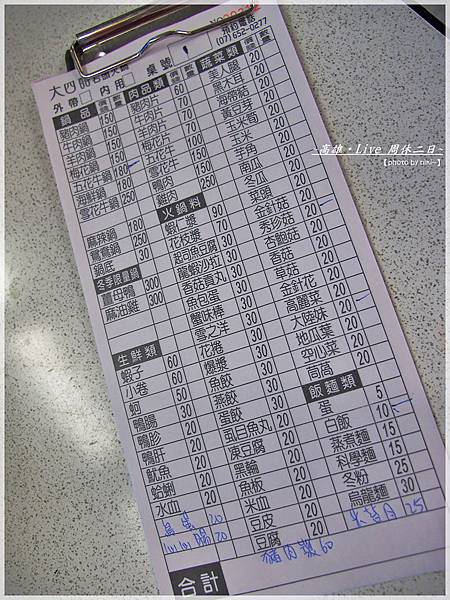 大四 石頭火鍋
預約電話
(07)652-0277
外帶 內用 桌號 1
鍋品 價錢 數量
豬肉鍋 150
牛肉鍋 150
羊肉鍋 150
梅花鍋 150
五花牛鍋 180
海鮮鍋 180
雪花牛鍋 250
麻辣鍋 180
鴛鴦鍋 250
鍋底 30
冬季限量鍋
薑母鴨 300
麻油雞 300
生鮮類
蝦子 60
小卷 60
蚵 50
鴨腸 30
鴨胗 20
鴨肝 20
魷魚 20
蛤蜊 20
水血 20
鳥蛋 20
肉品類 價錢 數量
豬肉片 60
牛肉片 70
羊肉片
梅花片
五花牛
雪花牛
鴨肉
雞肉 250
火鍋料
蝦漿 90
花枝漿 70
起司魚豆腐 30
龍蝦沙拉 30
香菇貢丸 30
魚包蛋 30
蟹味棒 30
雪之洋 30
花捲 30
爆漿 30
魚餃 30
燕餃 30
蛋餃 30
虱目魚丸 20
凍豆腐 20
黑輪 20
魚板 20
米血 20
豆皮 20
豆腐 20
蔬菜類 價錢 數量
美人腿 20
黑木耳 20
海帶結 20
黃豆芽 20
玉米筍 20
玉米 20
芋角 20
南瓜 20
冬瓜 20
菜頭 20
金針菇 20
秀珍菇 20
杏鮑菇 20
香菇 20
草菇 20
金針花 20
高麗菜 20
大陸妹 20
地瓜葉 20
空心菜 20
茼萵 20
飯麵類
蛋 5
白飯 10
蒸煮麵 15
科學麵 15
冬粉 25
烏龍麵 30
合計
~高雄·Live 周休二日~
【photo by niki~】